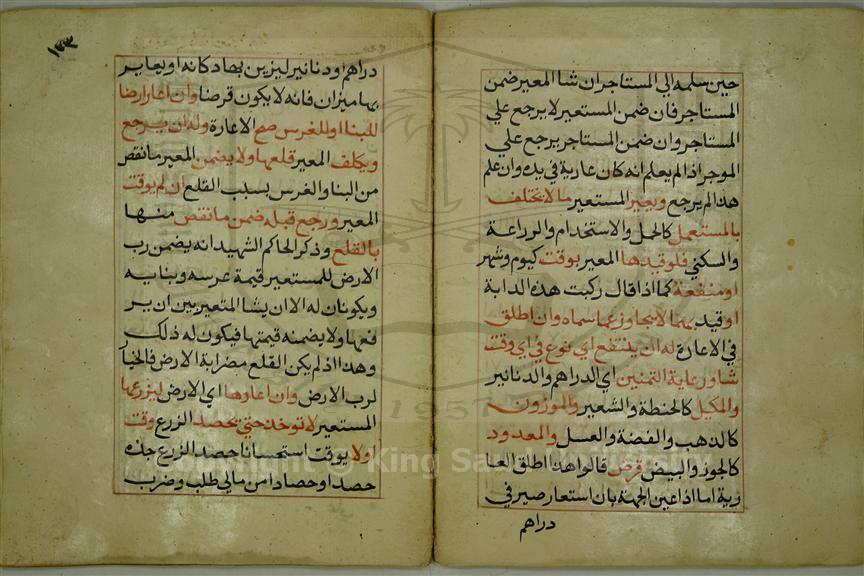 حين سلمه الي المستاجر ان شا المعير ضمن
المستاجر فان ضمن المستعير لا يرجع علي
المستاجر وان ضمن المستاجر يرجع علي
الموجر اذا لم يعلم انه كان عارية في يده وان علم
هذا لم يرجع ويعير المستعير ما لا يختلف
بالمستعمل كالحمل والاستخدام والزراعة
والسكني فلو قيدها المعير بوقت كيوم وشهر
او منفعة كما اذا قال ركبت هذه الدابة
او قيد بهما لا يتجاوز عما سماه وان اطلق
في الاعارة له ان ينتفع اي نوع في اي وقت
شا وعارية الثمنين اي الدراهم والدنانير
والمكيل كالحنطة والشعير والموزون
كالذهب والفضة والعسل والمعدود
كالجوز والبيض قرض قالوا هذا اطلق العا
رية اما اذا عين الجهة بان استعار صيرفي
دراهم
١٣٣
دراهم ودنانير ليزين بها دكانه او يعاير
بها ميزان فانه لا يكون قرضا وان اعار ارضا
للبنا او للغرس صح الاعارة وله ان يرجع
ويكلف المعير قلعها ولا يضمن المعير ما نقص
من البنا والغرس بسبب القلع ان لم يوقت
المعير ورجع قبله ضمن ما نقص منها
بالقلع وذكر الحاكم الشهيد انه يضمن رب
الارض للمستعير قيمة غرسه وبنايه
ويكونان له الا ان يشا المتعير بين ان ير
فعها ولا يضمنه قيمتها فيكون له ذلك
وهذا اذ لم يكن القلع مضرابة الارض فالخيار
لرب الارض وان اعارها اي الارض ليزرعها
المستعير لا توخذ حتي يحصد الزرع وقت
اولا يوقت استحسانا حصد الزرع جذه
حصدا وحصادا من مالي طلب وضرب
Copyright © King Saud University
1957